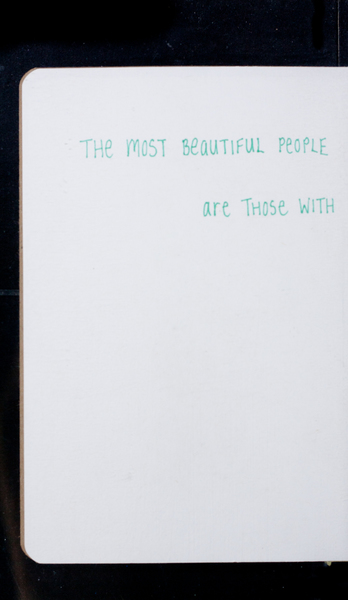 THe mOST BeauTIFUL PeOPLe
are THOSe WITH